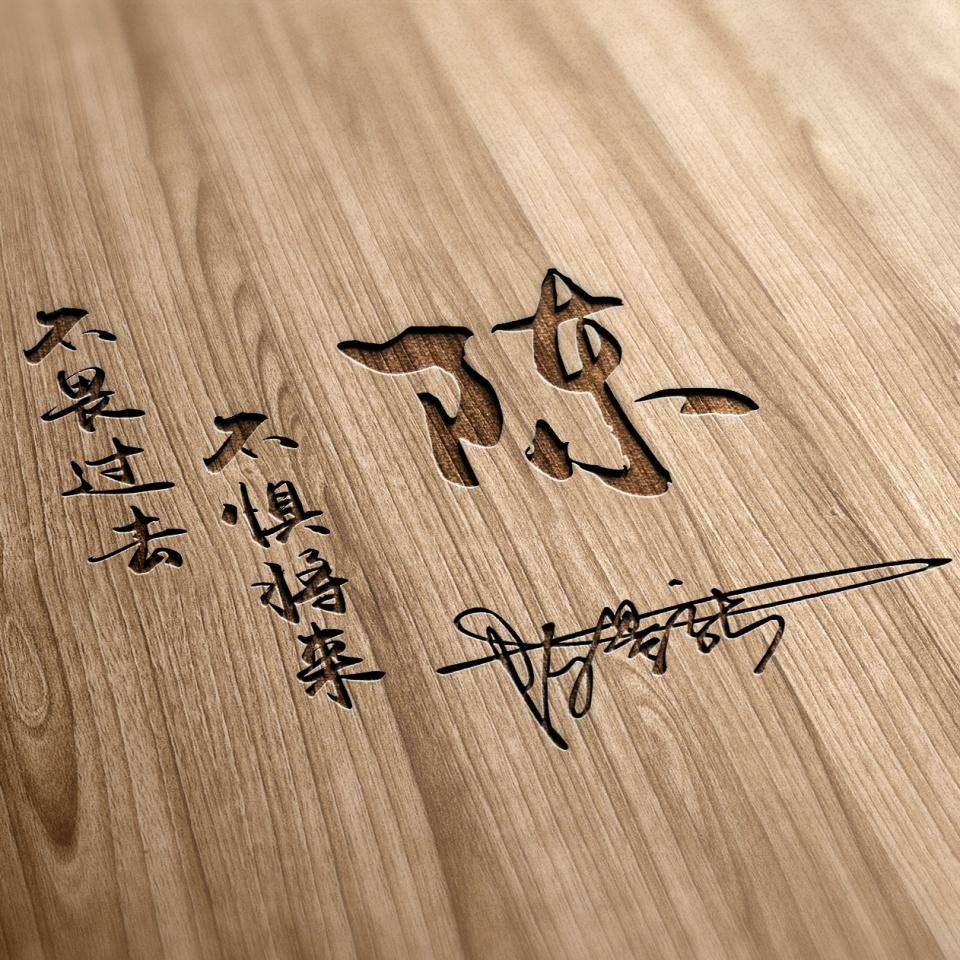 不畏过去
不惧将来
陈